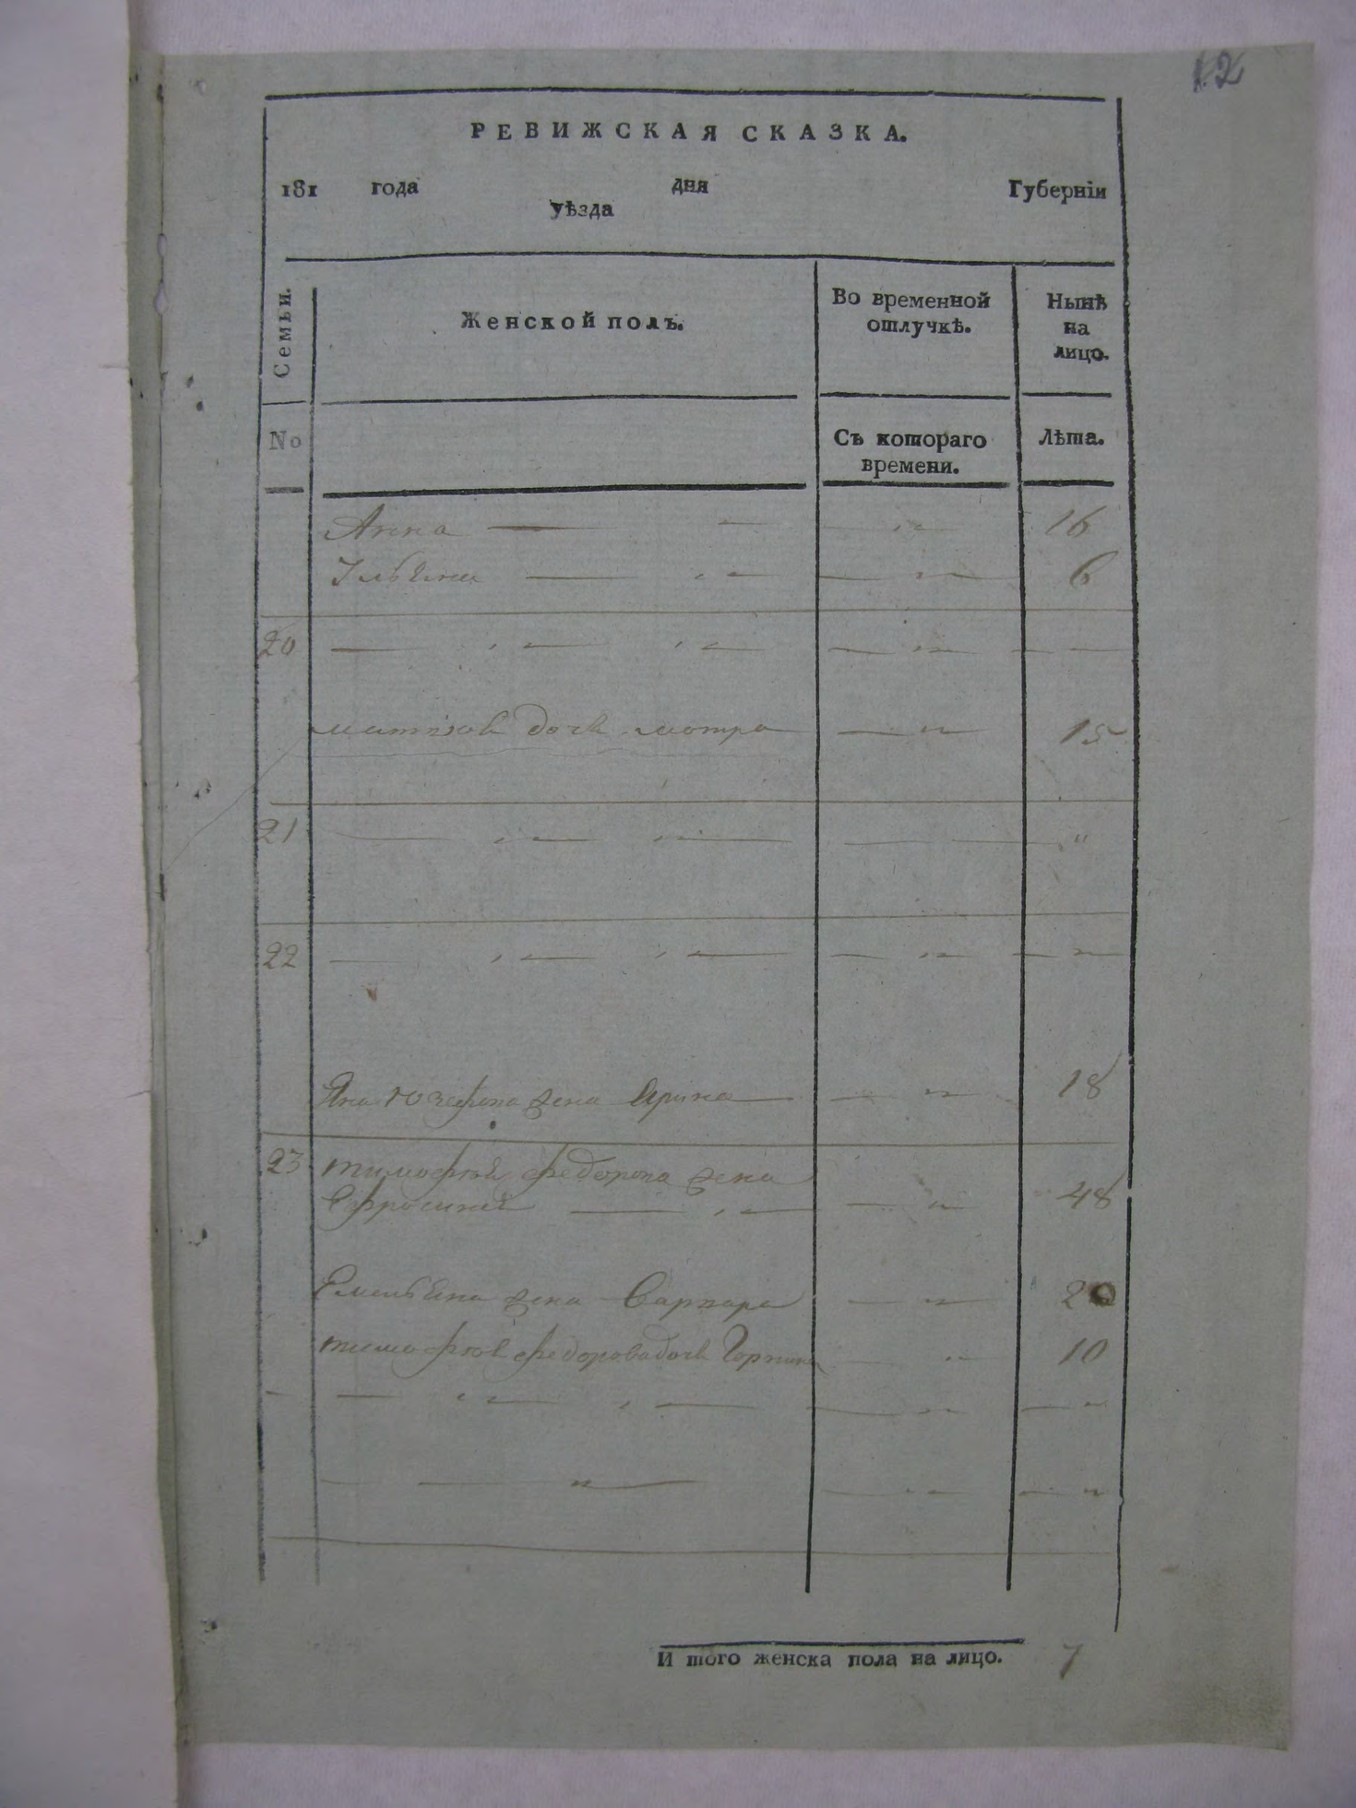 12
РЕВИЖСКАЯ СКАЗКА.
181 года дня Губерніи
уѣзда
Семьи. Женской полъ. Во временной отлучкѣ. Нынѣ на лицо.
No Съ котораго времени. Лѣта.
Анна 16
Ульяна 6
20
дочь мотра 15
21
22
Яна Юзефова жена Арина 18
23 тимофея федорова жена
Ефросиния 48
Емельяна жена Варвара 20
федорова дочь Горпина 10
И того женска пола на лицо. 7